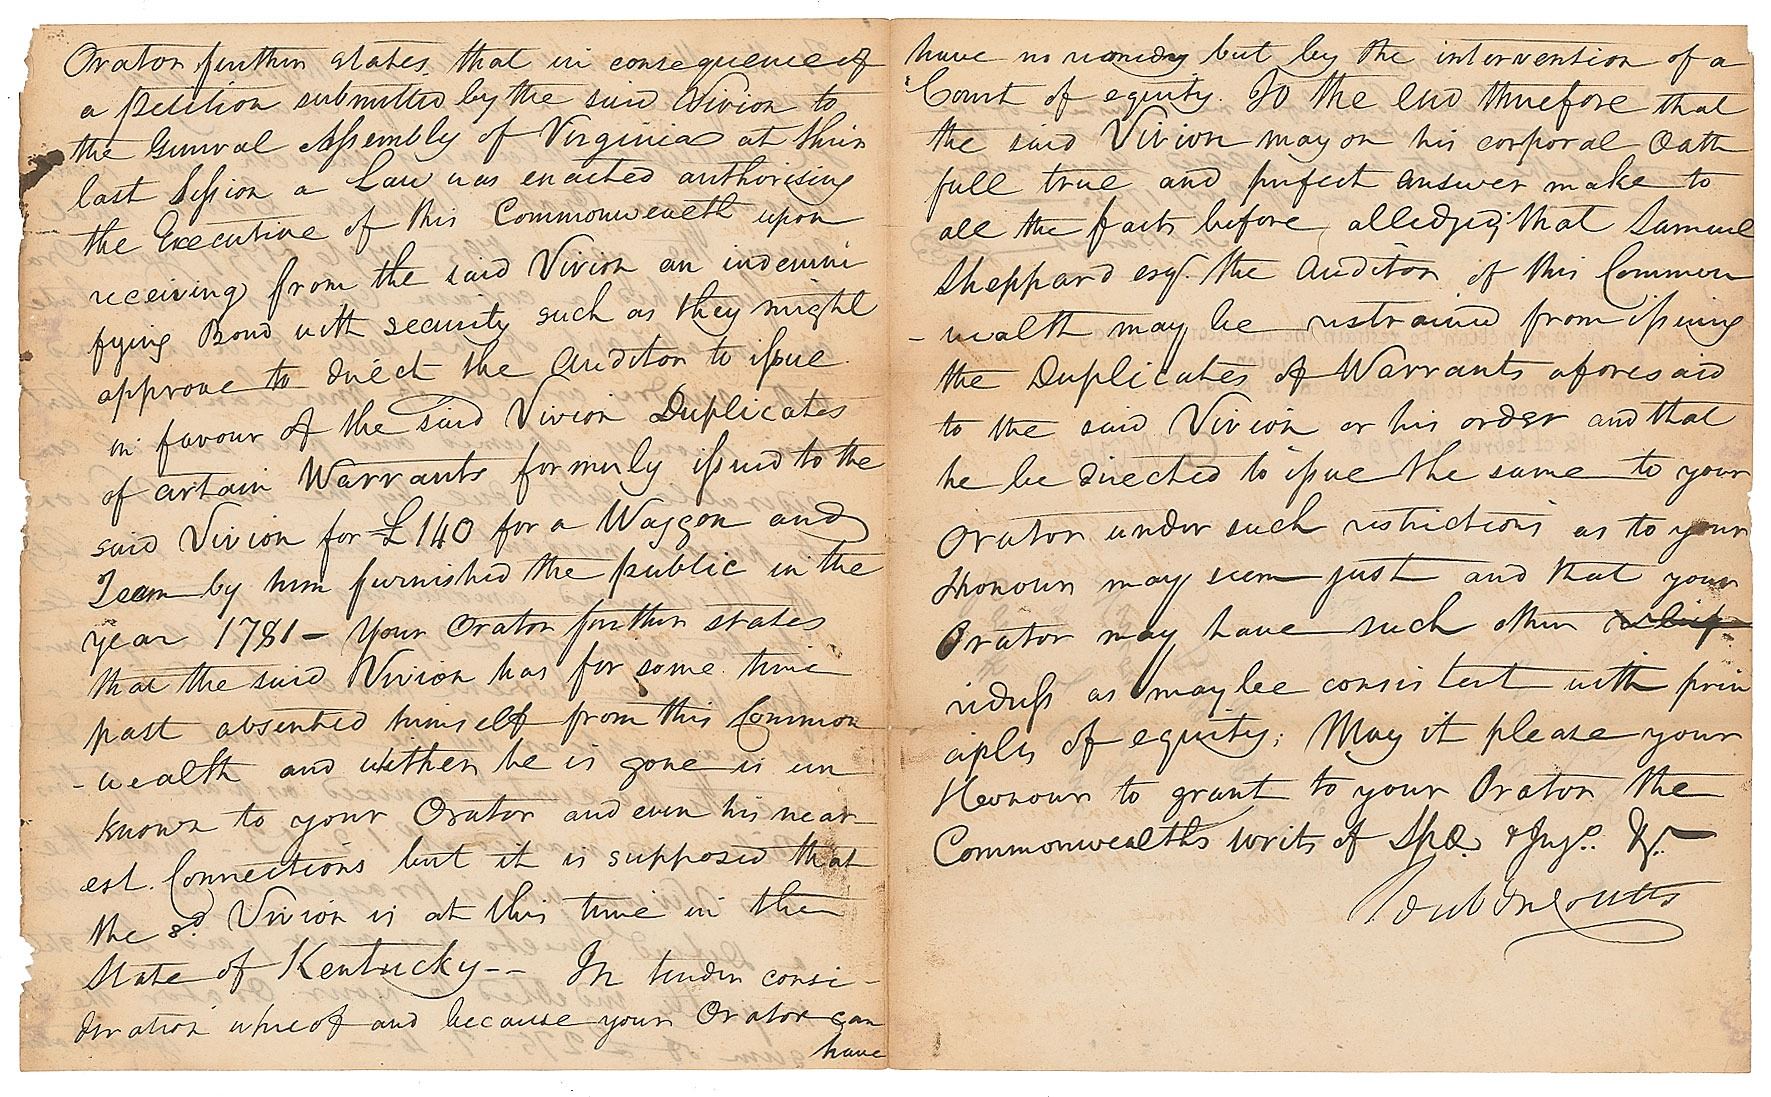 Orator further states that in consequence of
a Petition submitted by the said Vivion to
the General Assembly of Virginia at their
last Session a Law was enacted authorising
the Executive of this Commonwealth upon
receiving from the said Vivion an indemni
fying Bond with security such as they might
approve to direct the Auditor to issue
in favour of the said Vivion Duplicates
of certain Warrants formerly issued to the
said Vivion for £140 for a Waggon and
Team by him furnished the public in the
year 1781 - Your Orator further states
that the said Vivion has for some time
past absented himself from this Common
-wealth and wither he is gone is un
known to your Orator and even his near
est Connections but it is supposed that
the sd. Vivion is at this time in the
State of Kentucky -- In tender consi-
deration whereof and because your Orator can
have
have no remedy but by the intervention of a
Court of equity. To the end therefore that
the said Vivion may on his corporal Oath
full true and perfect answer make to
all the facts before alledged; that Samuel
Sheppard esqr. the Auditor of this Common
-wealth may be restrained from issuing
the Duplicates of Warrants aforesaid
to the said Vivion or his order and that
he be directed to issue the same to your
Orator under such restrictions as to your
Honours may seem just and that your
Orator may have such other relief
redress as may be consistent with prin
ciples of equity; May it please your
Honours to grant to your Orator the
Commonwealths writs of Spa. & Injo. &c.
Reub Coutts